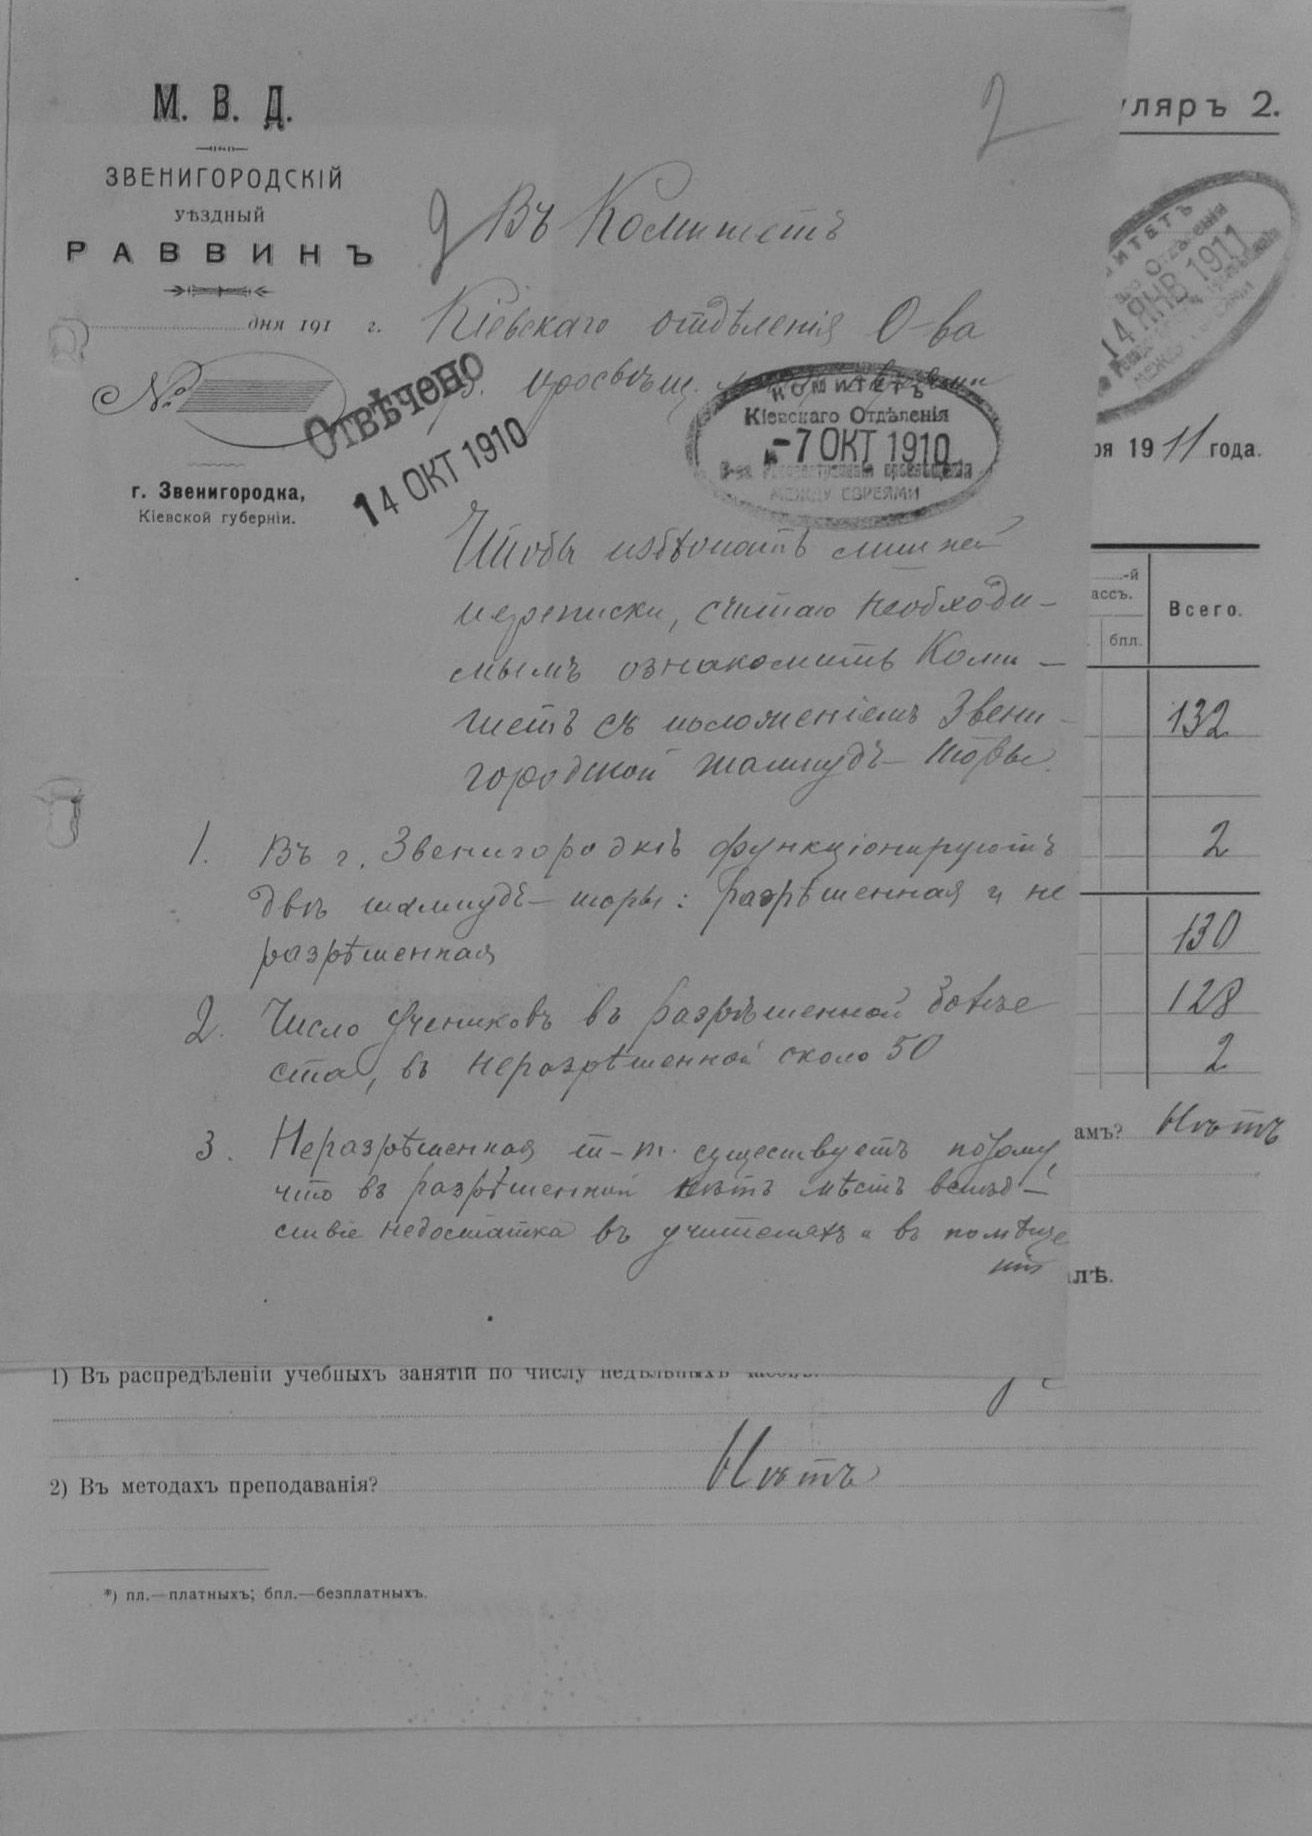 М. В. Д.
ЗВЕНИГОРОДСКІЙ
УѢЗДНЫЙ
РАВВИНЪ
дня 191 г.
№
г. Звенигородка,
Кіевской губерніи.
2
Въ Комитетъ
Кіевскаго отдѣленія О-ва
р. просвѣщ.
Отвѣчено
14 ОКТ 1910
КОМИТЕТЪ
Кіевскаго Отдѣленія
-7 ОКТ 1910
О-ва Распространенія просвѣщенія
МЕЖДУ ЕВРЕЯМИ
Чтобы избѣгать лишней
переписки, считаю необходи-
мымъ ознакомить Коми-
тетъ съ положеніемъ Звени-
городской талмудъ-торы.
1. Въ г. Звенигородкѣ функціонируютъ
двѣ талмудъ-торы: разрѣшенная и не
разрѣшенная
2. Число учениковъ въ разрѣшенной болѣе
ста, въ неразрѣшенной около 50
3. Неразрѣшенная т-т. существуетъ потому,
что въ разрѣшенной нѣтъ мѣстъ вслѣд-
ствіе недостатка въ учителяхъ и въ помѣще
ніи
уляръ 2.
ИТЕТЪ
14 ЯНВ 1911
МЕЖДУ
ря 1911 года.
-й
ассъ.
Всего.
бпл.
132
2
130
128
2
амъ? Нѣтъ
лѣ.
1) Въ распредѣленіи учебныхъ занятій по числу недѣльныхъ часовъ.
2) Въ методахъ преподаванія? Нѣтъ
*) пл.—платныхъ; бпл.—безплатныхъ.